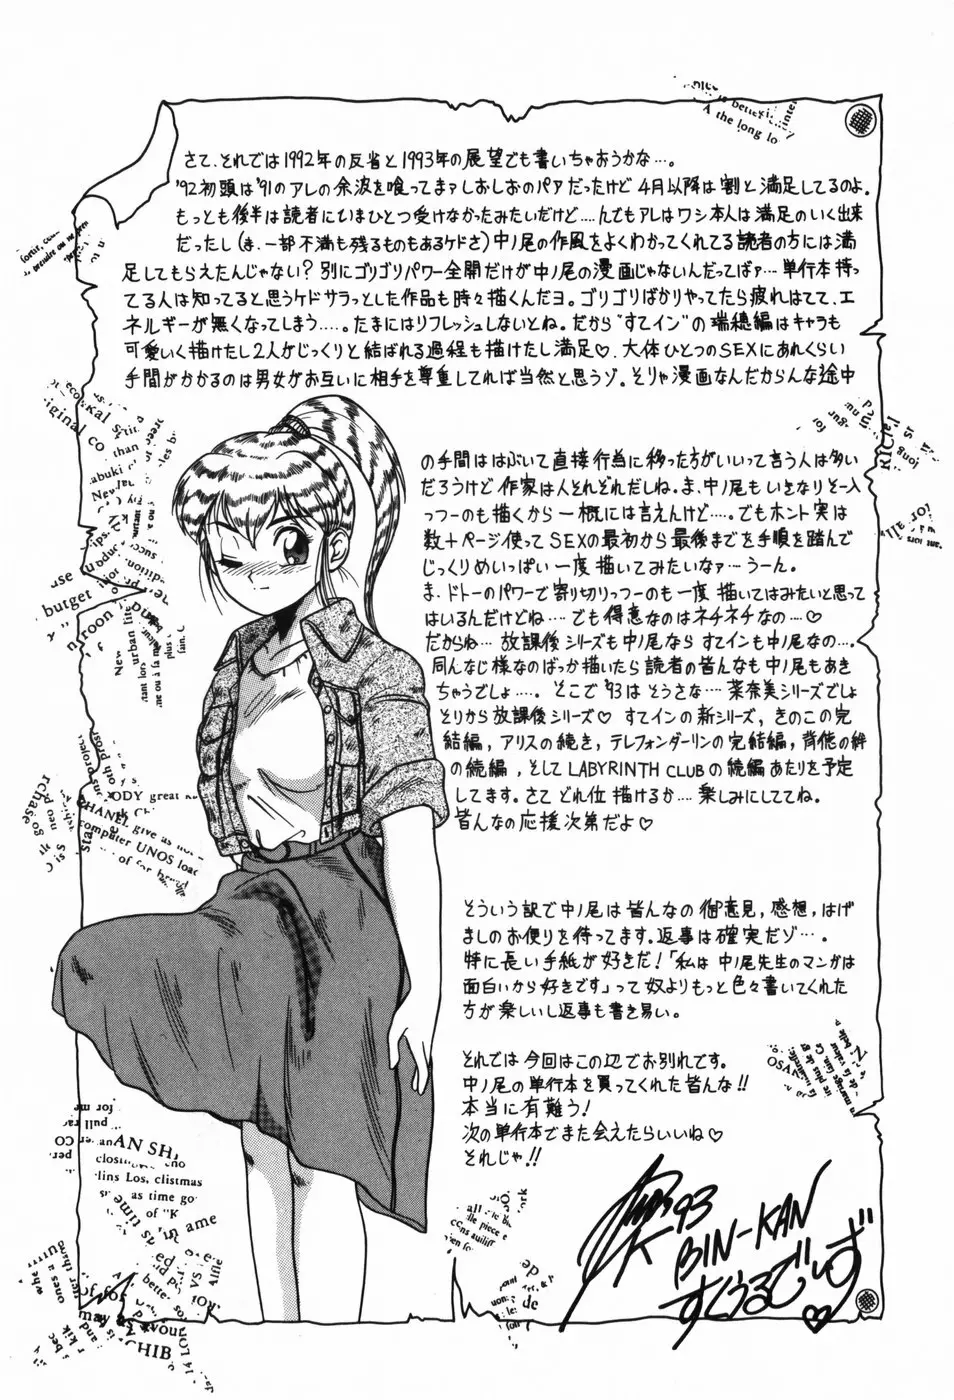 さて、それでは1992年の反省と1993年の展望でも書いちゃおうかな…。
'92初頭は'91のアレの余波を喰ってまァしおしおのパァだったけど4月以降は割と満足してるのよ。
もっとも後半は読者にいまひとつ受けなかったみたいだけど….んでもアレはワシ本人は満足のいく出来
だったし(ま、一部不満も残るものもあるケドさ)中ノ尾の作風をよくわかってくれてる読者の方には満
足してもらえたんじゃない?別にゴリゴリパワー全開だけが中ノ尾の漫画じゃないんだってばァ…単行本持っ
てる人は知ってると思うケドサラっとした作品も時々描くんだヨ。ゴリゴリばかりやってたら疲れはてて、エ
ネルギーが無くなってしまう….。たまにはリフレッシュしないとね。だから"すてイン"の瑞穂編はキャラも
可愛いく描けたし2人がじっくりと結ばれる過程も描けたし満足♡、大体ひとつのSEXにあれくらい
手間がかかるのは男女がお互いに相手を尊重してれば当然と思うゾ。そりゃ漫画なんだからんな途中
の手間ははぶいて直接行為に移った方がいいって言う人は多い
だろうけど作家は人それぞれだしね。ま、中ノ尾もいきなりそー入
っつーのも描くから一概には言えんけど….。でもホント実は
数十ページ使ってSEXの最初から最後までを手順を踏んで
じっくりめいっぱい一度描いてみたいなァ…うーん。
ま、ドトーのパワーで寄り切りっつーのも一度描いてはみたいと思って
はいるんだけどね…でも得意なのはネチネチなの…♡
だからね…放課後シリーズも中ノ尾ならすてインも中ノ尾なの….
同んなじ様なのばっか描いたら読者の皆んなも中ノ尾もあき
ちゃうでしょ….。そこで'93はそうさな…菜奈美シリーズでしょ
そりから放課後シリーズ♡すてインの新シリーズ,きのこの完
結編,アリスの続き,テレフォンダーリンの完結編,背徳の絆
の続編,そしてLABYRINTH CLUBの続編あたりを予定
してます。さてどれ位描けるか….楽しみにしててね。
皆んなの応援次第だよ♡
そういう訳で中ノ尾は皆んなの御意見,感想,はげ
ましのお便りを待ってます。返事は確実だゾ…。
特に長い手紙が好きだ!「私は中ノ尾先生のマンガは
面白いから好きです」って奴よりもっと色々書いてくれた
方が楽しいし返事も書き易い。
それでは今回はこの辺でお別れです。
中ノ尾の単行本を買ってくれた皆んな!!
本当に有難う!
次の単行本でまた会えたらいいね♡
それじゃ!!
K '93
BIN-KAN
すくうるでいず♡
the long lo
iginal co
than
abuki
butget
urban life
ODY great
CHANEL give as
computer UNOS loa
OSAK
AN SH
lins Los, clistmas
as time go
of "K
as time
ame
may as your
CHIB